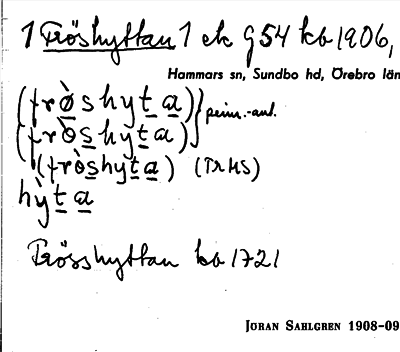 1 Fröshyttan 1 ek g 54 kb 1906,
Hammars sn, Sundbo hd, Örebro län
(frø̀shyta)
(frø̀shyta) } peinn.-aul.
(frø̀shyta) (TRHS)
hy̆̀ta
Frösshyttan kb 1721
JÖRAN SAHLGREN 1908-09